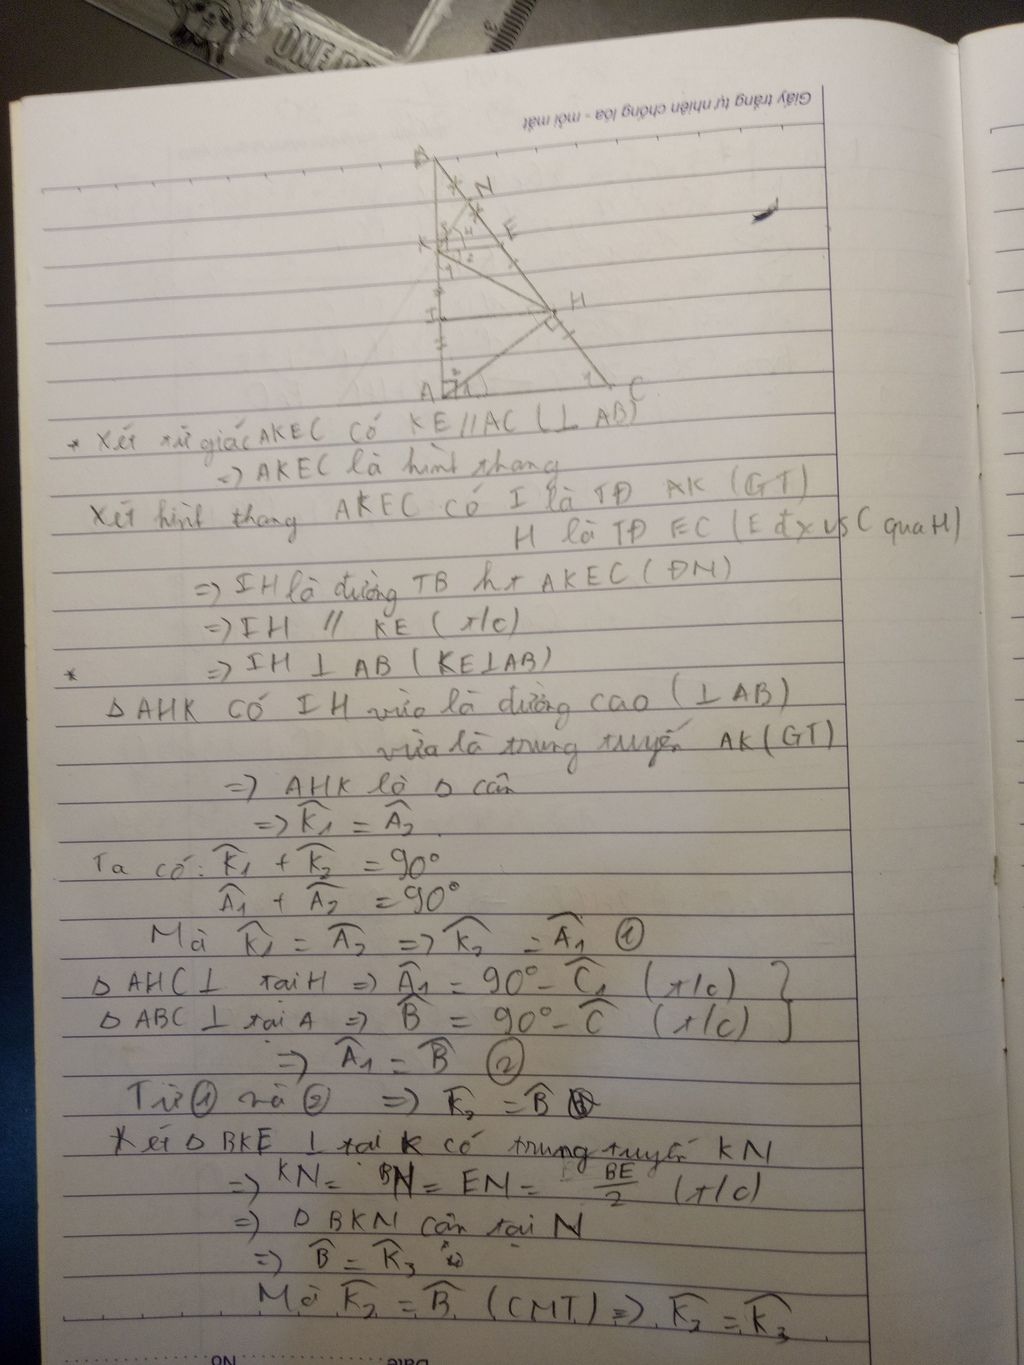 ONE
Giấy trắng tự nhiên chống lóa - mỏi mắt
B
N
K
3
4
E
2
1
I
H
A
2
1
1
C
* Xét tứ giác AKEC có KE // AC (⊥ AB)
=> AKEC là hình thang
Xét hình thang AKEC có I là TĐ AK (GT)
H là TĐ EC (E đx vs C qua H)
=> IH là đường TB ht AKEC (ĐN)
=> IH // KE (t/c)
* => IH ⊥ AB (KE ⊥ AB)
Δ AHK có IH vừa là đường cao (⊥ AB)
vừa là trung tuyến AK (GT)
=> AHK là Δ cân
=> K̂1 = Â2
Ta có: K̂1 + K̂2 = 90°
Â1 + Â2 = 90°
Mà K̂1 = Â2 => K̂2 = Â1 ①
Δ AHC ⊥ tại H => Â1 = 90° - Ĉ1 (t/c) }
Δ ABC ⊥ tại A => B̂ = 90° - Ĉ (t/c) }
=> Â1 = B̂ ②
Từ ① và ② => K̂2 = B̂
Xét Δ BKE ⊥ tại K có trung tuyến KN
=> KN = BN = EN = BE/2 (t/c)
=> Δ BKN cân tại N
=> B̂ = K̂3
Mà K̂2 = B̂ (CMT) => K̂2 = K̂3
Date
No